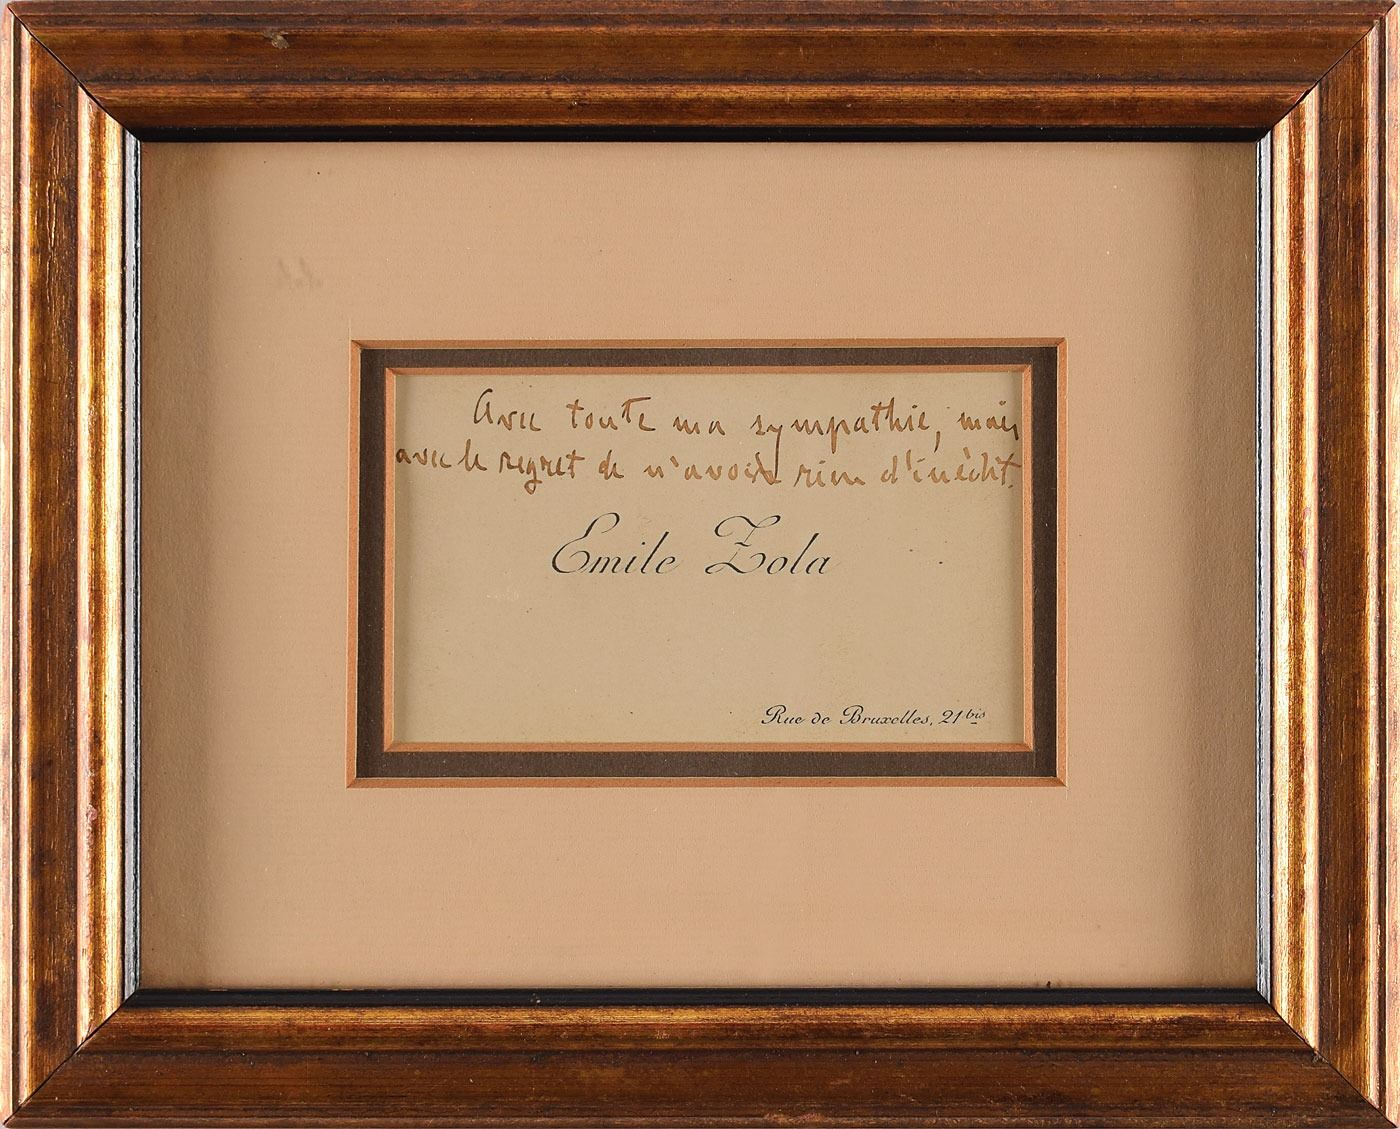 Avec toute ma sympathie, mais
avec le regret de n'avoir rien d'inédit.
Emile Zola
Rue de Bruxelles, 21 bis